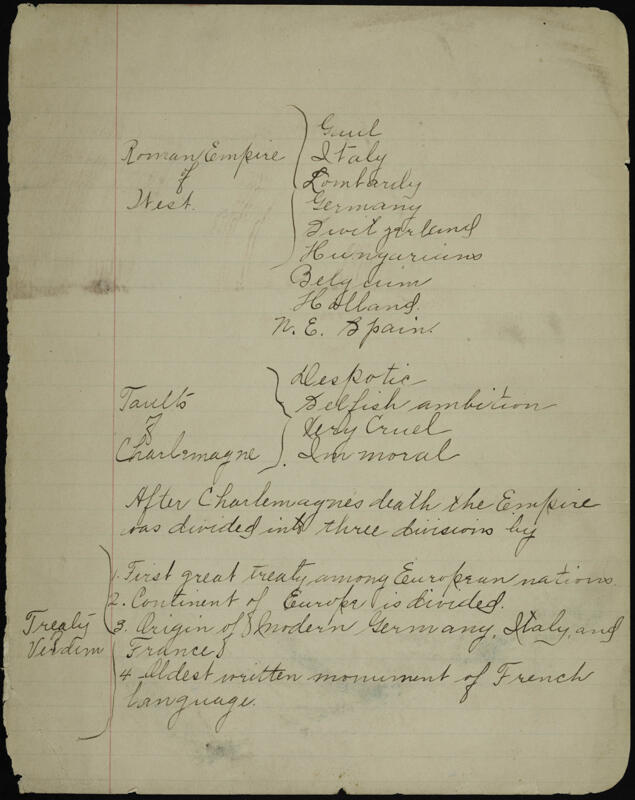 Roman Empire
of
West.
Gaul
Italy
Lombardy
Germany
Switzerland
Hungarians
Belgium
Holland.
N. E. Spain.
Faults
of
Charlemagne
Despotic
Selfish ambition
Very Cruel
Immoral
After Charlemagne's death the Empire
was divided into three divisions by
Treaty
Verdun
1. First great treaty among European nations.
2. Continent of Europe is divided.
3. Origin of modern Germany, Italy, and
France
4. Oldest written monument of French
language.